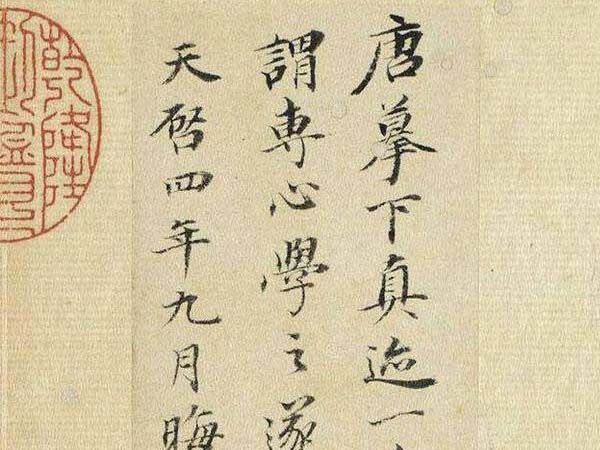 唐摹下真迹一
謂専心學之遂
天啓四年九月晦
乾隆